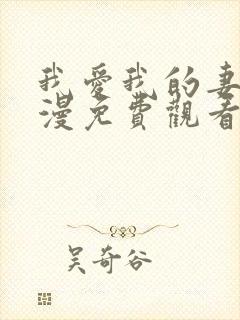 我愛我的妻
漫免費觀看
吴奇谷